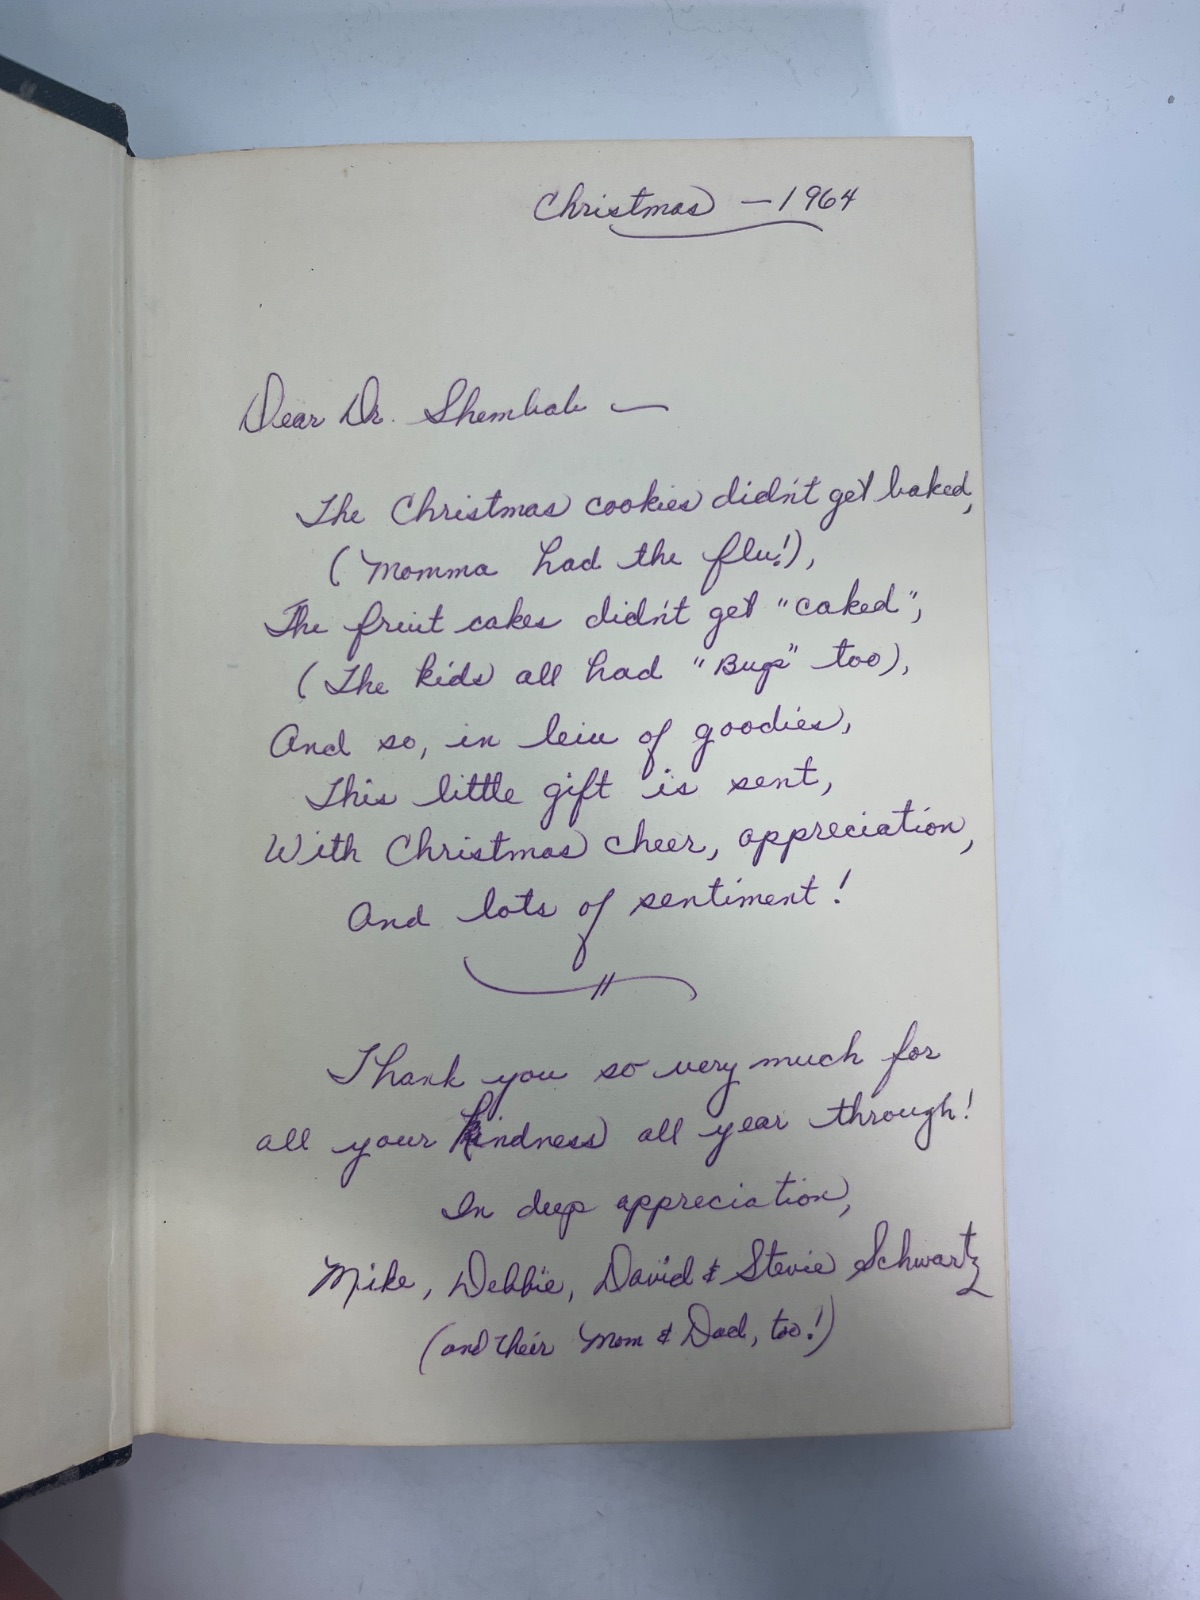 Christmas — 1964
Dear Dr. Shembab —
The Christmas cookies didn't get baked,
(Momma had the flu!),
The fruit cakes didn't get "caked",
(The kids all had "Bugs" too),
And so, in leiu of goodies,
This little gift is sent,
With Christmas cheer, appreciation,
And lots of sentiment!
Thank you so very much for
all your kindness all year through!
In deep appreciation,
Mike, Debbie, David & Stevie Schwartz
(and their Mom & Dad, too!)